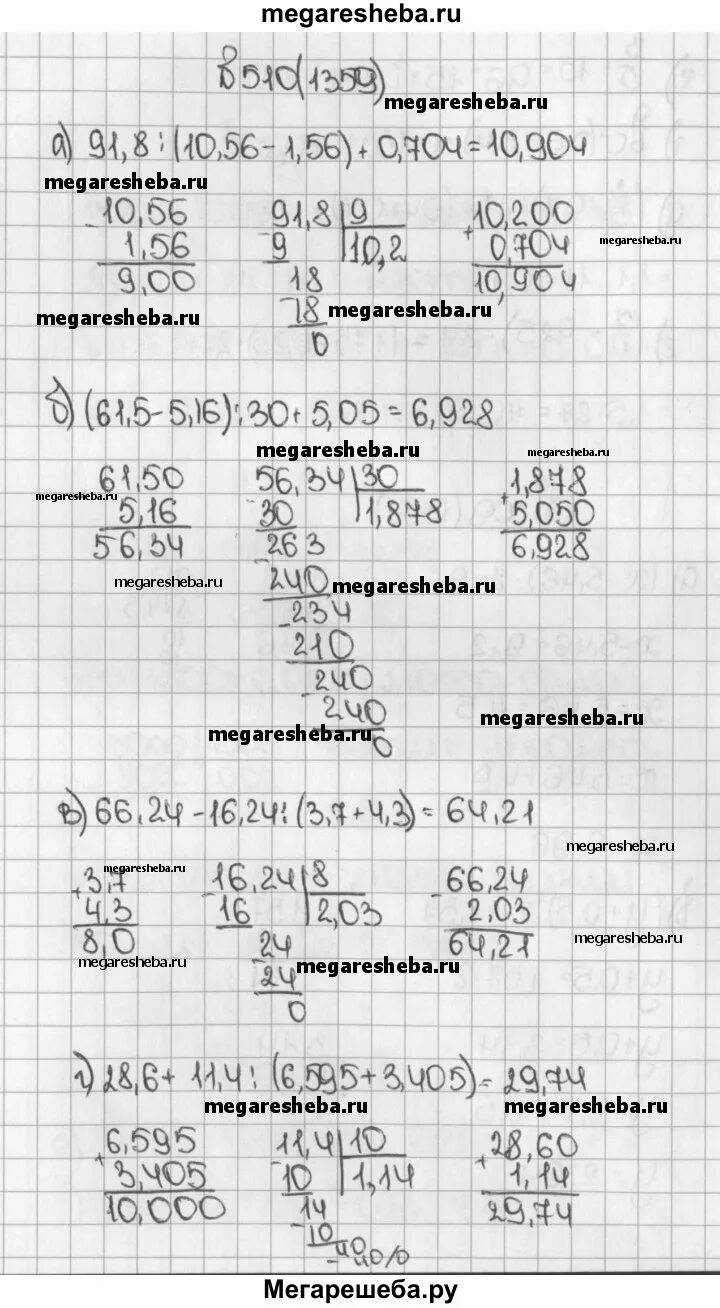 megaresheba.ru
В 510(1359)
megaresheba.ru
а) 91,8 : (10,56 - 1,56) + 0,704 = 10,904
megaresheba.ru
10,56 91,8 | 9 10,200
- 1,56 - 9 | 10,2 + 0,704 megaresheba.ru
9,00 18 10,904
megaresheba.ru - 18 megaresheba.ru
0
б) (61,5 - 5,16) : 30 + 5,05 = 6,928
megaresheba.ru megaresheba.ru
61,50 56,34 | 30 1,878
megaresheba.ru - 5,16 - 30 | 1,878 + 5,050
56,34 263 6,928
megaresheba.ru - 240 megaresheba.ru
234
- 210
240
- 240 megaresheba.ru
megaresheba.ru 0
в) 66,24 - 16,24 : (3,7 + 4,3) = 64,21
megaresheba.ru
3,7 megaresheba.ru 16,24 | 8 66,24
+ 4,3 - 16 | 2,03 - 2,03
8,0 24 64,21
megaresheba.ru - 24 megaresheba.ru megaresheba.ru
0
г) 28,6 + 11,4 : (6,595 + 3,405) = 29,74
megaresheba.ru megaresheba.ru
6,595 11,4 | 10 28,60
+ 3,405 - 10 | 1,14 + 1,14
10,000 14 29,74
- 10
40
- 40/0
Мегарешеба.ру